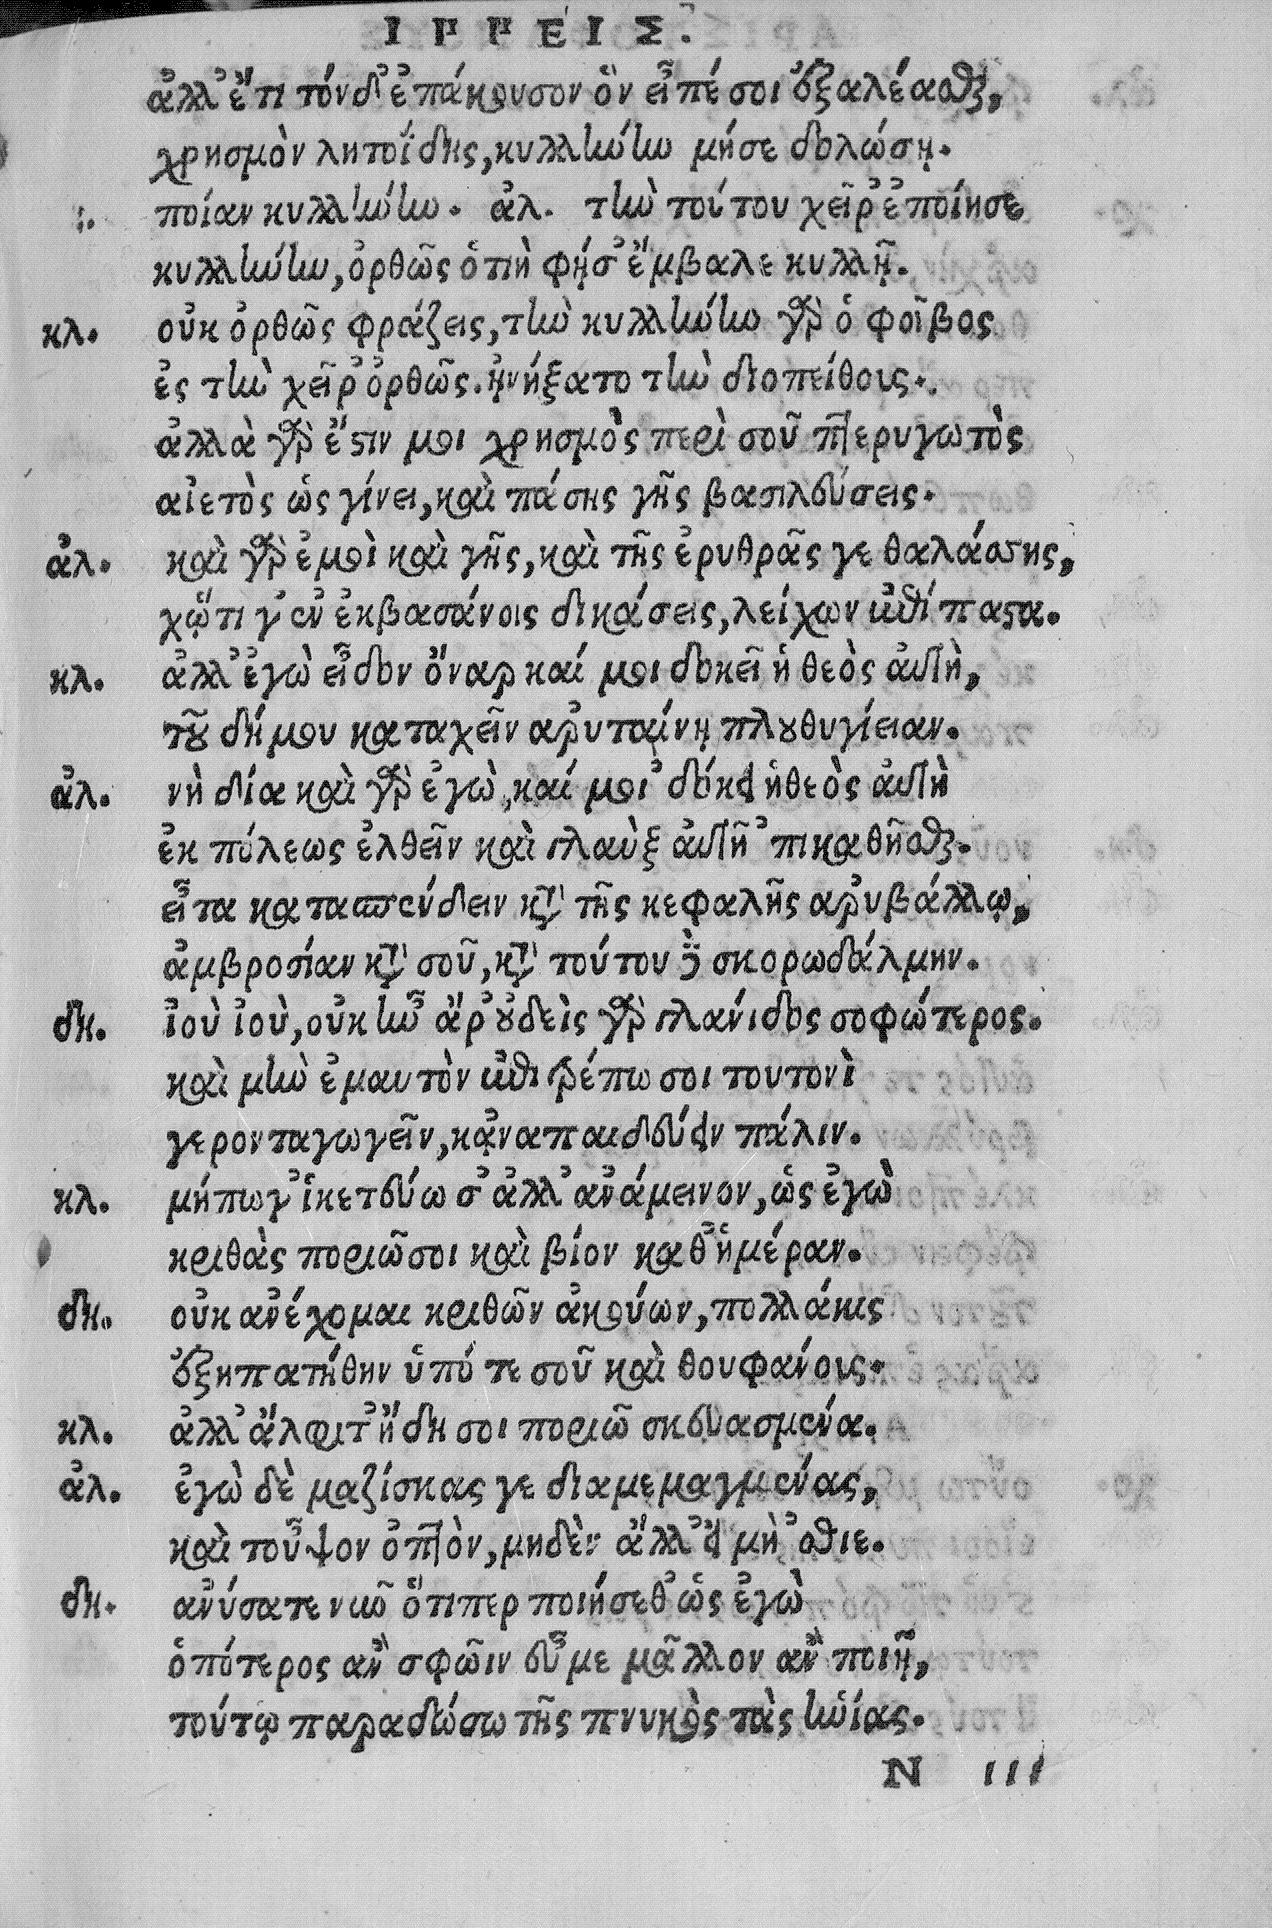 ΙΠΠΕΙΣ.
ἀλλ' ἔτι τόνδ' ἐπάκουσον ὃν εἶπέ σοι ἐξαλέασθαι,
χρησμὸν λητοΐδης, κυλλήνην μήσε δολώσῃ.
ποίαν κυλλήνην. ἀλ. τὴν τούτου χεῖρ' ἐποίησε
κυλλήνην, ὀρθῶς ὁτιὴ φήσ' ἔμβαλε κυλλῇ.
κλ. οὐκ ὀρθῶς φράζεις, τὴν κυλλήνην γὰρ ὁ φοῖβος
ἐς τὴν χεῖρ' ὀρθῶς. ᾐνήξατο τὴν διοπείθους.
ἀλλὰ γὰρ ἔστιν μοι χρησμὸς περὶ σοῦ πτερυγωτὸς
αἰετὸς ὡς γίνει, καὶ πάσης γῆς βασιλεύσεις.
ἀλ. καὶ γὰρ ἐμοὶ καὶ γῆς, καὶ τῆς ἐρυθρᾶς γε θαλάσσης,
χᾤτι γ' ἐν ἐκβασάνοις δικάσεις, λείχων ἐπίπαστα.
κλ. ἀλλ' ἐγὼ εἶδον ὄναρ καί μοι δοκεῖ ἡ θεὸς αὐτὴ,
τοῦ δήμου καταχεῖν ἀρυταίνῃ πλουθυγίειαν.
ἀλ. νὴ δία καὶ γὰρ ἐγὼ, καί μοι' δόκει ἡθεὸς αὐτὴ
ἐκ πόλεως ἐλθεῖν καὶ γλαὺξ αὐτῇ 'πικαθῆσθαι.
εἶτα κατασπένδειν κατὰ τῆς κεφαλῆς ἀρυβάλλῳ,
ἀμβροσίαν κατὰ σοῦ, κατὰ τούτου δὲ σκορωδάλμην.
δη. ἰοὺ ἰοὺ, οὐκ ἦν ἄρ' οὐδεὶς γὰρ γλάνιδος σοφώτερος.
καὶ μὴν ἐμαυτὸν ἐπιτρέπω σοι τουτονὶ
γερονταγωγεῖν, κᾀναπαιδεύειν πάλιν.
κλ. μήπωγ' ἱκετεύω σ' ἀλλ' ἀνάμεινον, ὡς ἐγὼ
κριθὰς ποριῶσοι καὶ βίον καθ' ἡμέραν.
δη. οὐκ ἀνέχομαι κριθῶν ἀκούων, πολλάκις
ἐξηπατήθην ὑπό τε σοῦ καὶ θουφάνους.
κλ. ἀλλ' ἄλφιτ' ἤδη σοι ποριῶ σκευασμένα.
ἀλ. ἐγὼ δὲ μαζίσκας γε διαμεμαγμένας,
καὶ τοὖψον ὀπτὸν, μηδὲν ἄλλ' εἰ μὴ 'σθιε.
δη. ἀνύσατε νῦν ὅτιπερ ποιήσεθ' ὡς ἐγὼ
ὁπότερος ἂν σφῶϊν εὖ με μᾶλλον ἂν ποιῇ,
τούτῳ παραδώσω τῆς πνυκὸς τὰς ἡνίας.
N iii